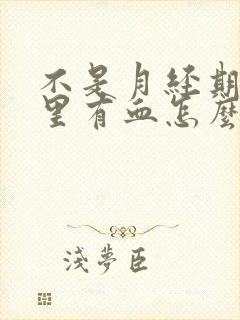 不是月经期
里有血怎麼
浅夢臣